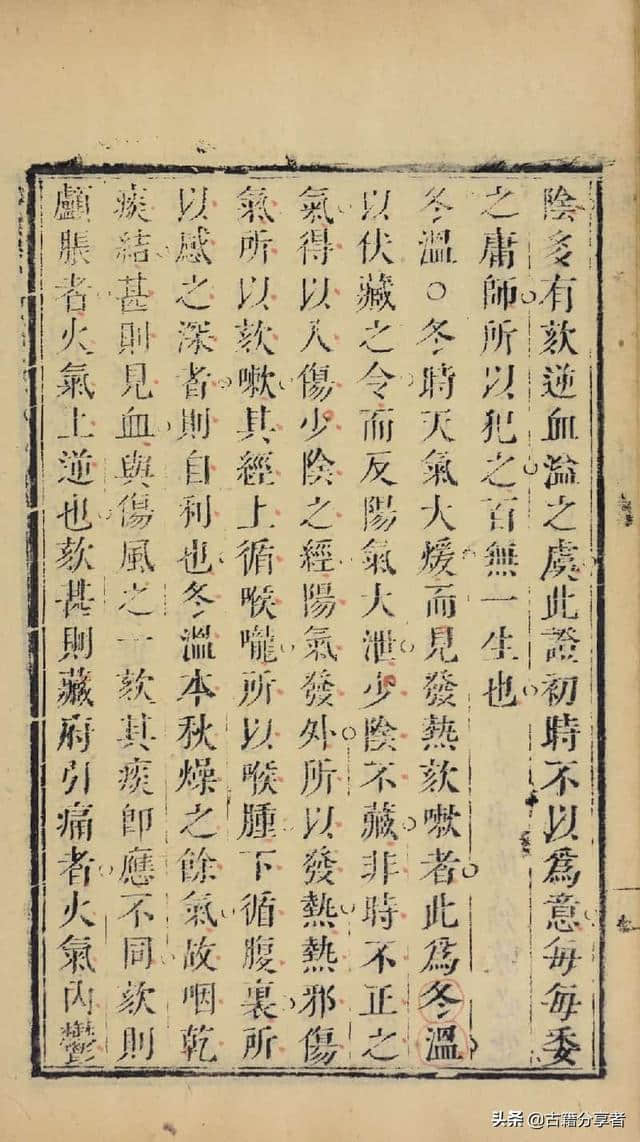 陰多有欬逆血溢之虞此證初時不以爲意每每委
之庸師所以犯之百無一生也
冬溫○冬時天氣大煖而見發熱欬嗽者此爲冬溫
以伏藏之令而反陽氣大泄少陰不藏非時不正之
氣得以入傷少陰之經陽氣發外所以發熱熱邪傷
氣所以欬嗽其經上循喉嚨所以喉腫下循腹裏所
以感之深者則自利也冬溫本秋燥之餘氣故咽乾
痰結甚則見血與傷風之一欬其痰卽應不同欬則
顱脹者火氣上逆也欬甚則藏府引痛者火氣內鬱
头条 @古籍分享者